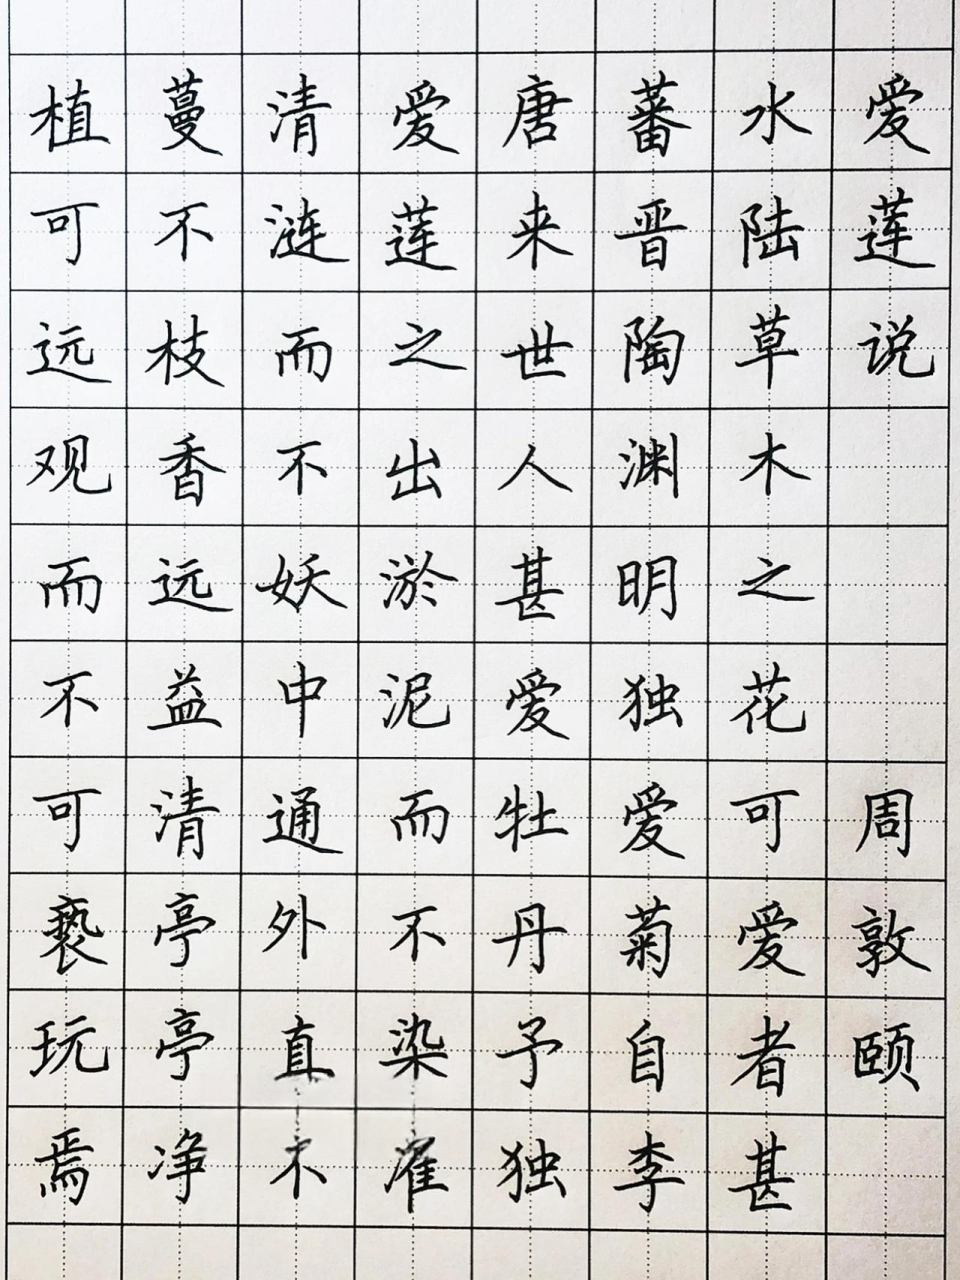 爱莲说 周敦颐
水陆草木之花可爱者甚
蕃晋陶渊明独爱菊自李
唐来世人甚爱牡丹予独
爱莲之出淤泥而不染
清涟而不妖中通外直不
蔓不枝香远益清亭亭净
植可远观而不可亵玩焉